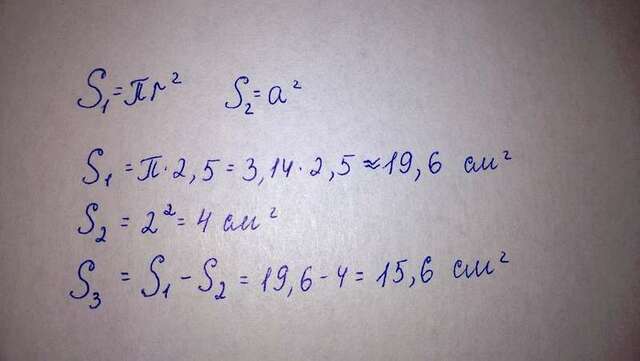 S₁=πr² S₂=a²
S₁=π·2,5=3,14·2,5≈19,6 см²
S₂=2²=4 см²
S₃=S₁-S₂=19,6-4=15,6 см²